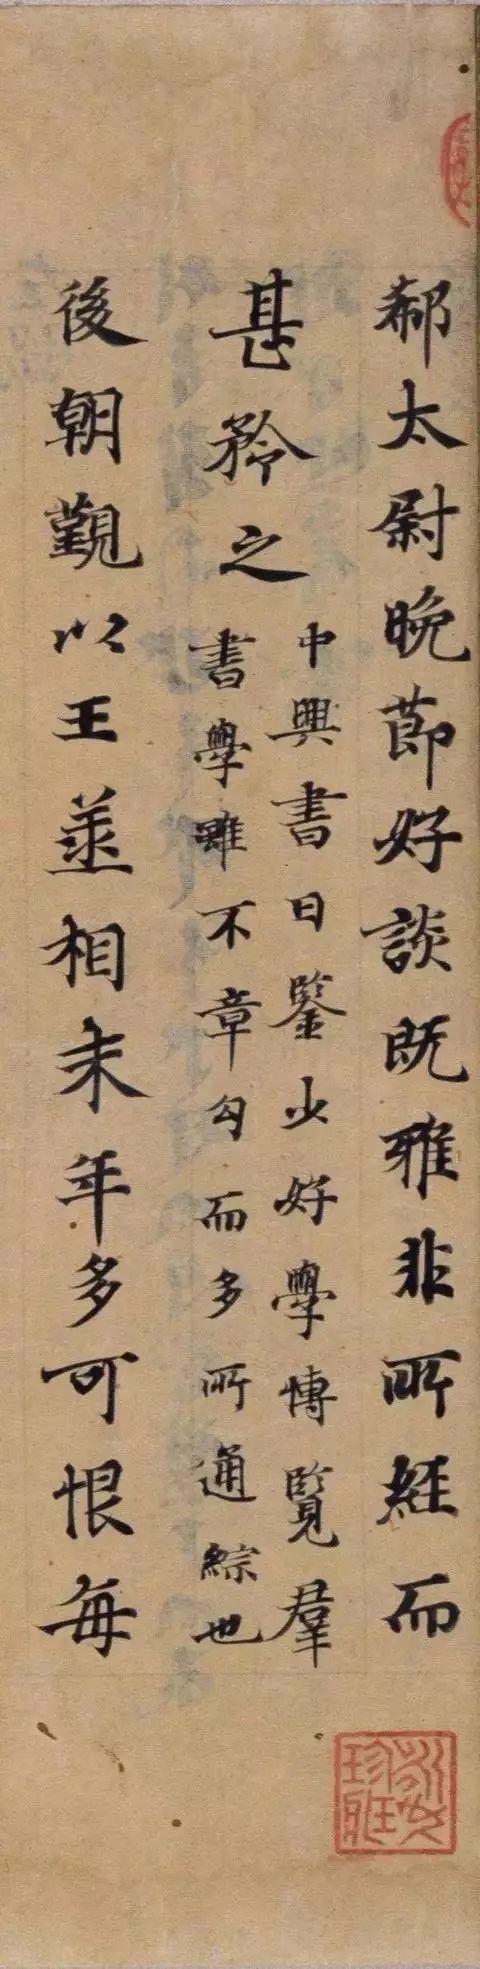 郗太尉晩莭好談既雅非所經而
甚矜之
中興書曰鑒少好學博覽羣
書學雖不章句而多所通綜也
後朝覲以王丞相末年多可恨每